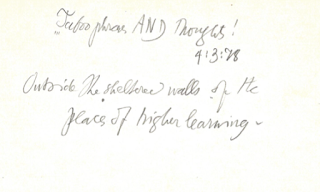 "Taboo phrases AND thoughts!
4.3.78
Outside the sheltered walls of the
places of higher learning -